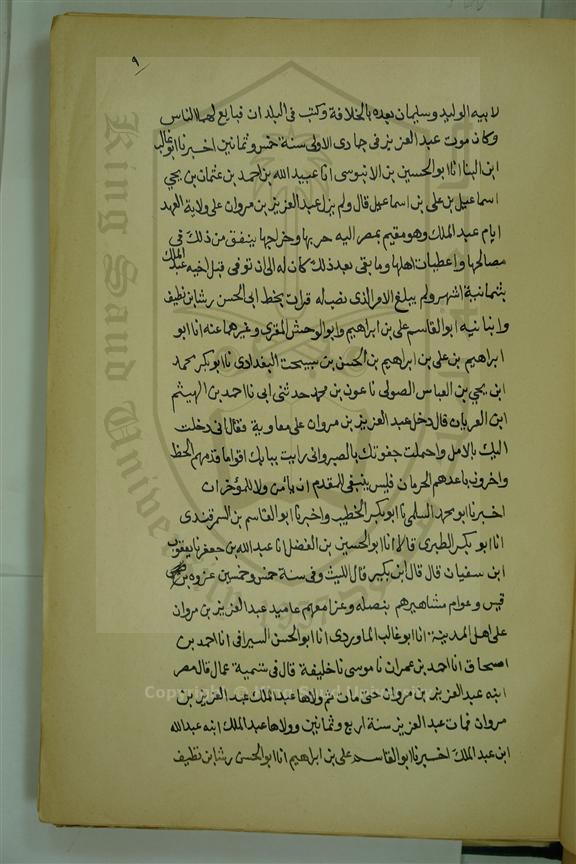 ٩
لابيه الوليد وسليمان بعده بالخلافة وكتب في البلدان فبايع لهما الناس
وكان موت عبد العزيز في جمادى الاولى سنة خمس وثمانين اخبرنا ابو غالب
ابن البنا انا ابو الحسين بن الابنوسى انا عبيد الله بن احمد بن عثمان بن يحيى
اسماعيل بن على بن اسماعيل قال ولم يزل عبد العزيز بن مروان على ولاية العهد
ايام عبد الملك وهو مقيم بمصر اليه حربها وخراجها ينفق من ذلك في
مصالحها واعطيات اهلها وما بقى بعد ذلك كان له الى ان توفى قبل اخيه عبد الملك
بثمانية اشهر ولم يبلغ الامر الذى نصبه له قرات بخط ابى الحسن رشا بن نظيف
وانبانيه ابو القاسم على بن ابراهيم وابو الوحش المقرى وغيرهما عنه انا ابو
ابراهيم بن على بن ابراهيم بن الحسن بن سيبخت البغدادى نا ابو بكر محمد
ابن يحيى بن العباس الصولى نا عون بن محمد حدثنى ابى نا احمد بن الهيثم
ابن العريان قال دخل عبد العزيز بن مروان على معاوية فقال انى دخلت
اليك بالامل واحتملت جفوتك بالصبر وانى رايت ببابك اقواما قدمهم الحظ
واخرون باعدهم الحرمان فليس ينبغى للمقدم ان يامن ولا للمؤخر ان
اخبرنا ابو محمد السلمى نا ابو بكر الخطيب واخبرنا ابو القاسم بن السمرقندى
انا ابو بكر الطبرى قالا انا ابو الحسين بن الفضل انا عبد الله بن جعفر نا يعقوب
ابن سفيان قال قال ابن بكير قال الليث وفى سنة خمس وخمسين غزوه بن
قيس وعوام مشاهيرهم عبد العزيز بن مروان
على اهل المدينة انا ابو غالب الماوردى انا ابو الحسن السيرافى انا احمد بن
اسحاق انا احمد بن عمران نا موسى نا خليفة قال فى تسمية عمال قاله مصر
ابنه عبد العزيز بن مروان حتى مات ثم ولاها عبد الملك عبد العزيز بن
مروان فمات عبد العزيز سنة اربع وثمانين وولاها عبد الملك ابنه عبد الله
ابن عبد الملك اخبرنا ابو القاسم على بن ابراهيم انا ابو الحسن رشا بن نظيف
King Saud University
Copyright © King Saud University
1957